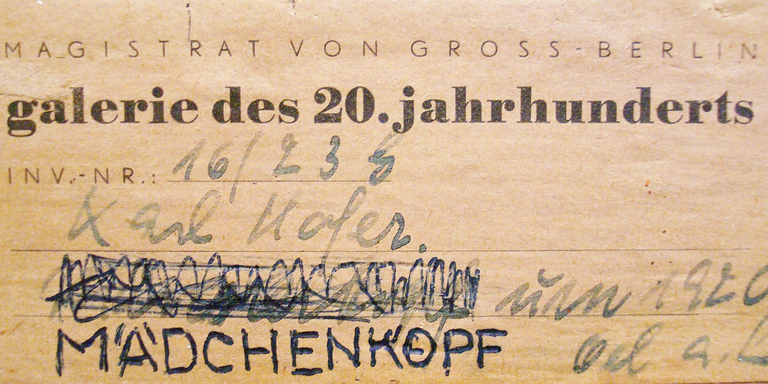 MAGISTRAT VON GROSS-BERLIN
galerie des 20. jahrhunderts
INV.-NR.: 16/238
Karl Hofer.
um 1920
MÄDCHENKOPF Oel a. L